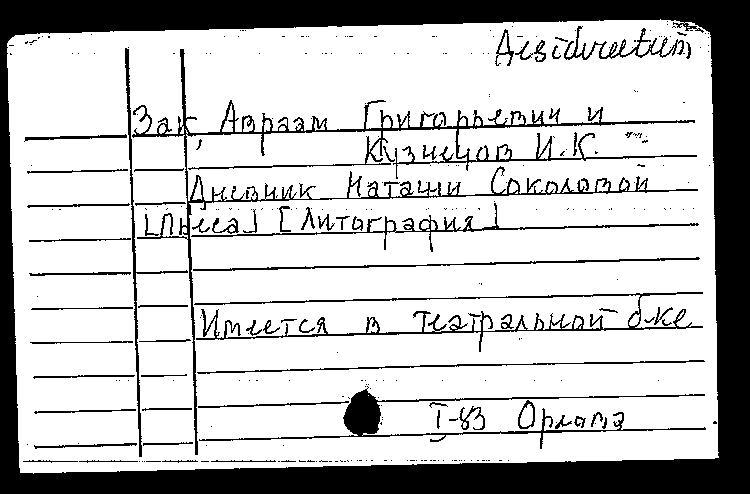 Desideratum
Зак, Авраам Григорьевич и
Кузнецов И.К.
Дневник Наташи Соколовой
[Пьеса] [Литография]
Имеется в театральной б-ке
I-83 Орлова